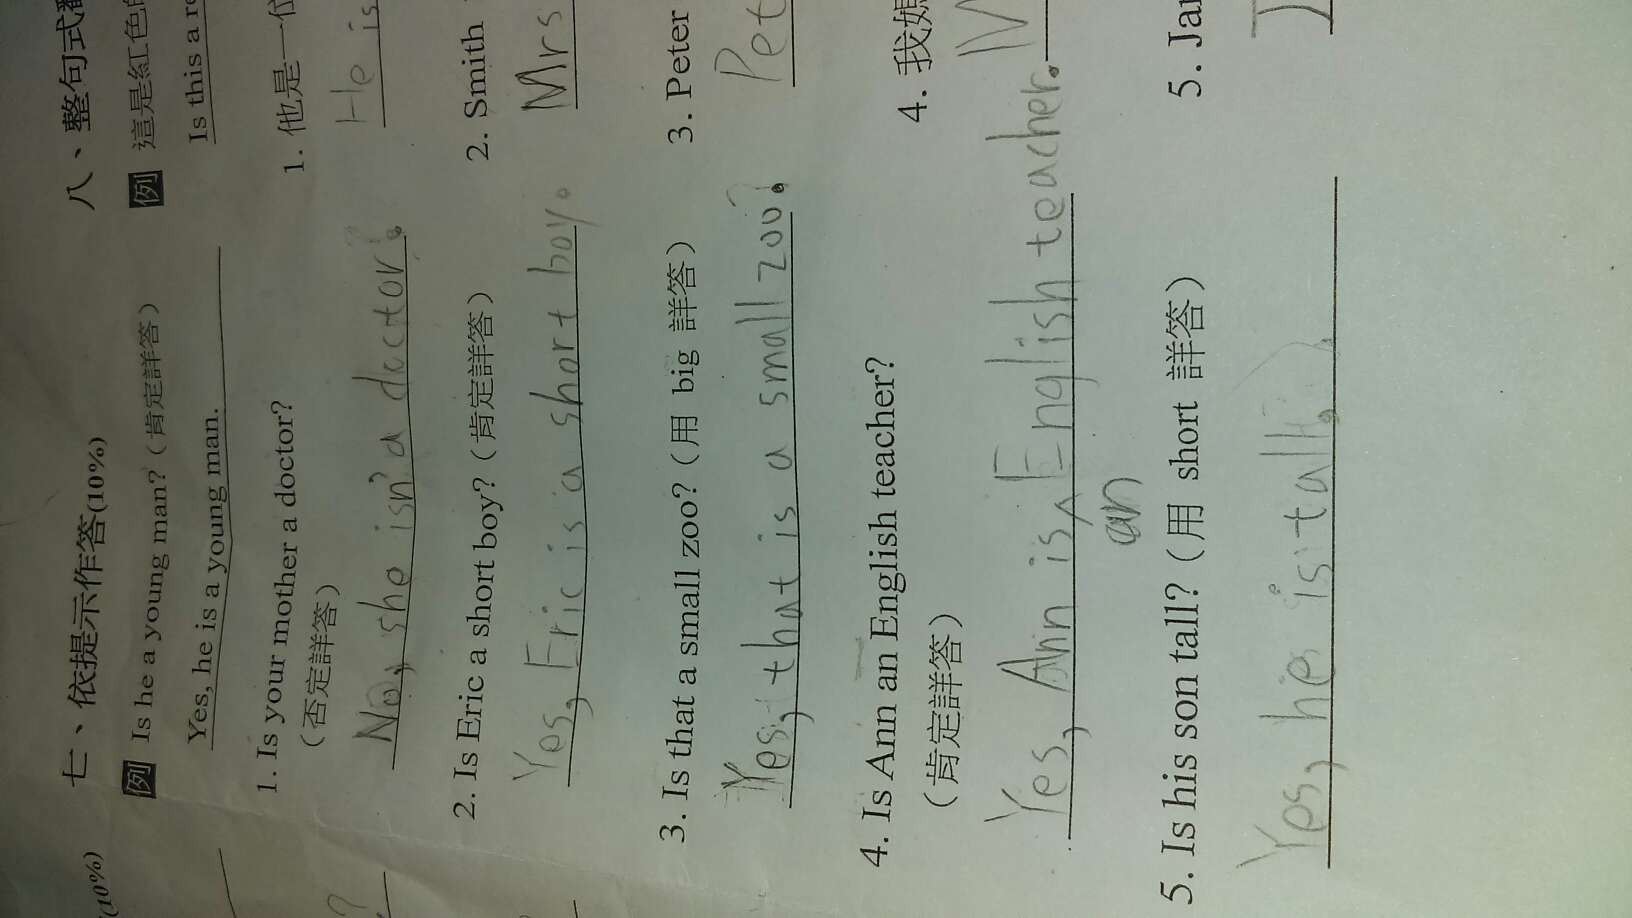 (10%)
七、依提示作答(10%)
例 Is he a young man?（肯定詳答）
Yes, he is a young man.
1. Is your mother a doctor?
（否定詳答）
No, she isn' a doctor.
2. Is Eric a short boy?（肯定詳答）
Yes, Eric is a short boy.
3. Is that a small zoo?（用 big 詳答）
Yes, that is a small zoo.
4. Is Ann an English teacher?
（肯定詳答）
Yes, Ann is English teacher.
an
5. Is his son tall?（用 short 詳答）
Yes, he is tall.
八、整句式
例 這是紅色
Is this a
1. 他是一位
He is
2. Smith
Mrs
3. Peter
Pet
4. 我媽
5. Ja